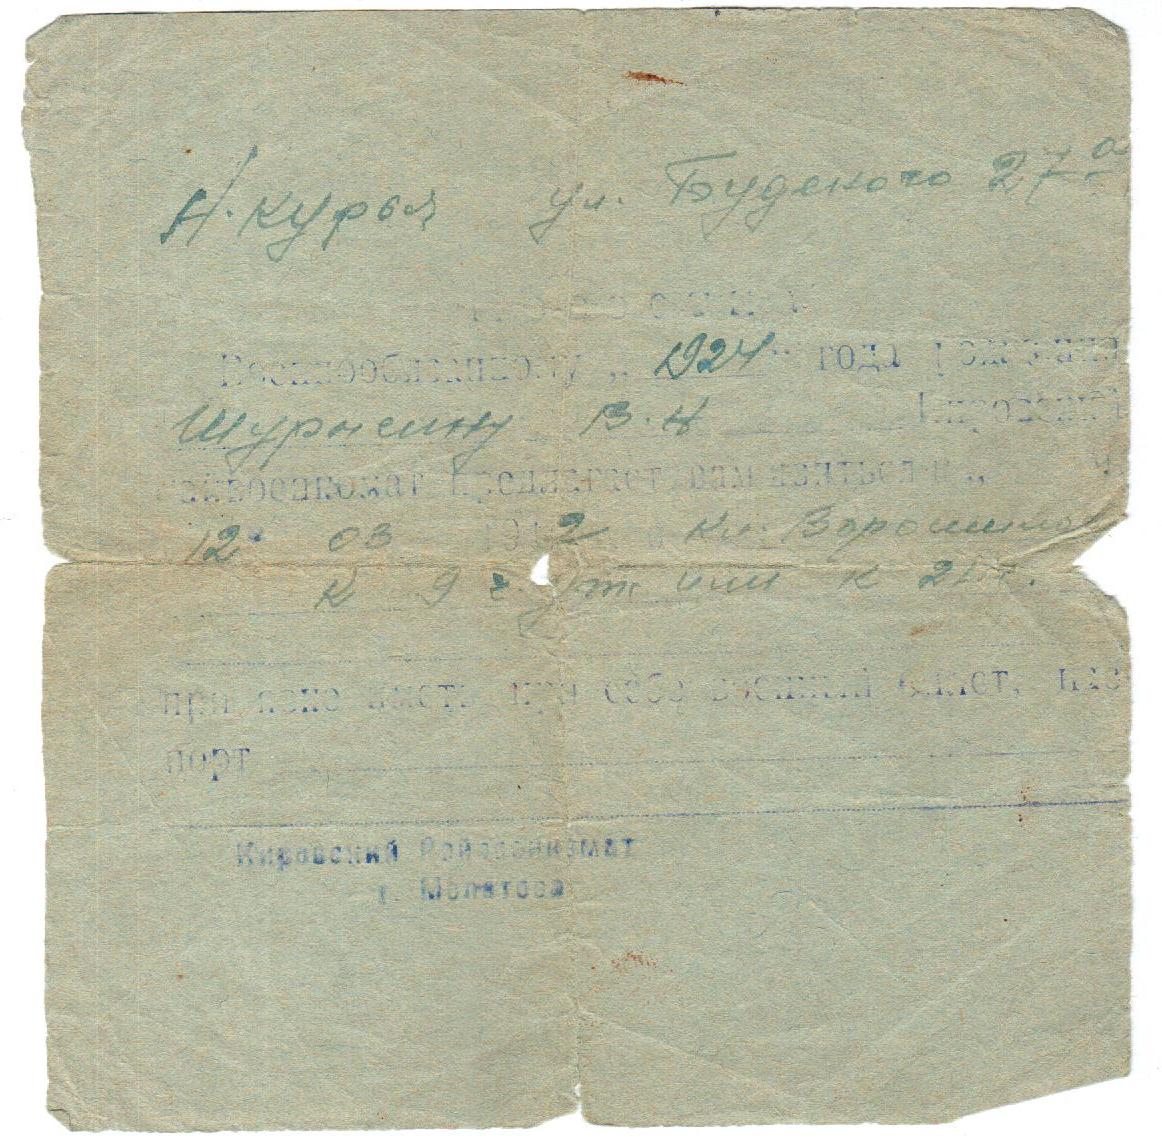 Н. Курья ул. Буденого 27а
Военнообязанному „ 1924 " года рождения
Шурысину В. Н Кировский
райвоенкомат предлагает вам явиться в „
12 03 194 2 Кл. Ворошилов
к 9 ч. ут или к 21 ч.
при себе военный билет, пас
порт
Кировский Райвоенкомат
г. Молотова